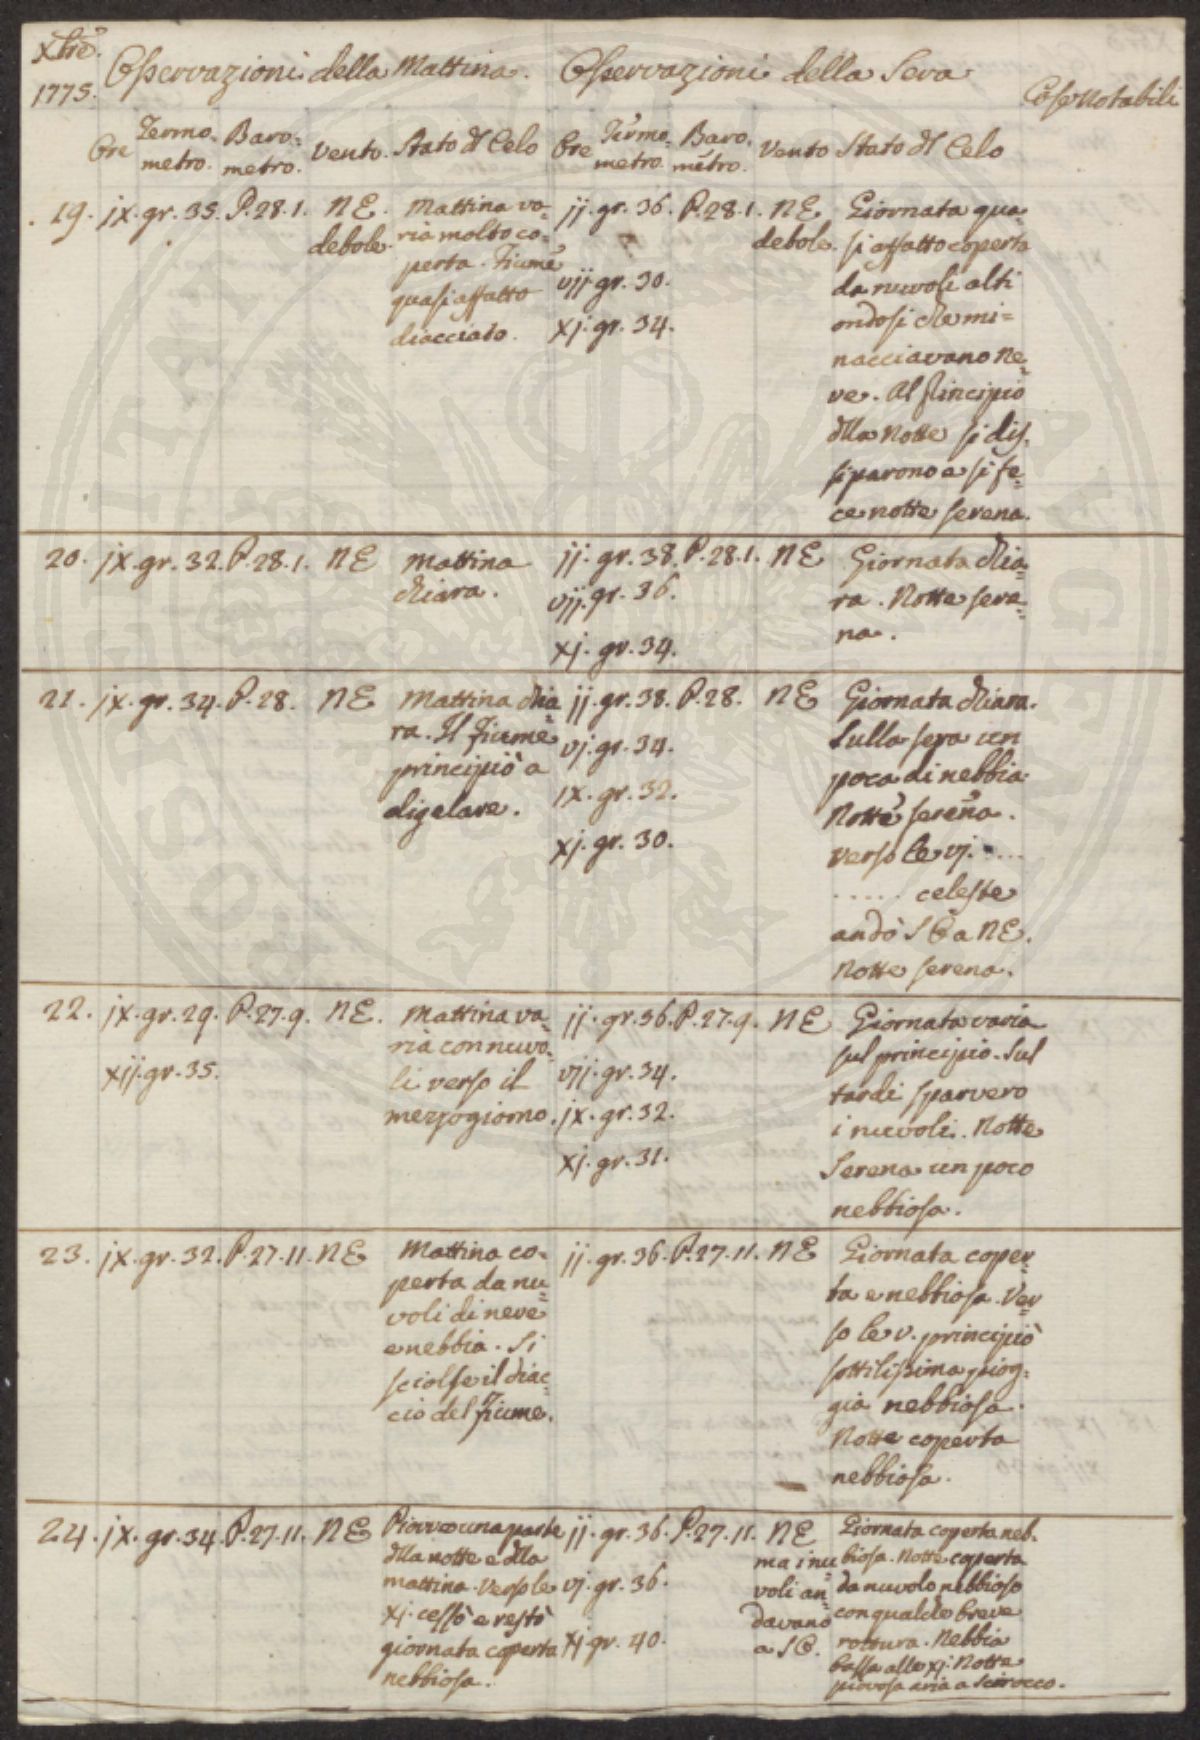 Xbre.
1775.
Osservazioni della Mattina.
Osservazioni della Sera
Cose Notabili
Ore
Termo-
metro.
Baro-
metro.
Vento.
Stato dl Celo
Ore
Termo-
metro.
Baro-
metro.
Vento
Stato dl Celo
19. jx. gr. 35. P. 28. 1. NE.
debole.
Mattina va-
ria molto co-
perta. Fiume
quasi affatto
diacciato.
jj. gr. 36. P. 28. 1. NE
debole.
vjj. gr. 30.
xj. gr. 34.
Giornata qua
si affatto coperta
da nuvoli alti
ondosi che mi=
nacciavano Ne=
ve. Al principio
dlla Notte si dis-
siparono e si fe=
ce notte serena.
20. jx. gr. 32. P. 28. 1. NE
Mattina
chiara.
jj. gr. 38. P. 28. 1. NE
vjj. gr. 36.
xj. gr. 34.
Giornata chia=
ra. Notte sere=
na.
21. jx. gr. 34. P. 28. NE
Mattina chia=
ra. Il Fiume
principiò a
digelare.
jj. gr. 38. P. 28. NE
vj. gr. 34.
jx. gr. 32.
xj. gr. 30.
Giornata chiara.
Sulla sera un
poca di nebbia
Notte serena.
verso le vj. ....
..... celeste
andò SO a NE.
Notte serena.
22. jx. gr. 29. P. 27. 9. NE.
xjj. gr. 35.
Mattina va=
ria con nuvo=
li verso il
mezzogiorno.
jj. gr. 36. P. 27. 9. NE
vjj. gr. 34.
jx. gr. 32.
xj. gr. 31.
Giornata varia
sul principio. Sul
tardi sparvero
i nuvoli. Notte
Serena un poco
nebbiosa.
23. jx. gr. 32. P. 27. 11. NE
Mattina co-
perta da nu=
voli di neve
e nebbia. Si
sciolse il diac=
cio del Fiume.
jj. gr. 36. P. 27. 11. NE
Giornata coper=
ta e nebbiosa. Ver=
so le v. principiò
sottilissima piog=
gia nebbiosa.
Notte coperta
nebbiosa.
24. jx. gr. 34. P. 27. 11. NE
Piovve una parte
dlla notte e dlla
mattina. Verso le
xj. cessò e restò
giornata coperta
nebbiosa.
jj. gr. 36. P. 27. 11. NE
ma i nu=
voli an=
davano
a SO.
vj. gr. 36.
xj. gr. 40.
Giornata coperta neb-
biosa. Notte coperta
da nuvolo nebbioso
con qualche breve
rottura. Nebbia
bassa alle xj. Notte
piovosa aria a Scirocco.